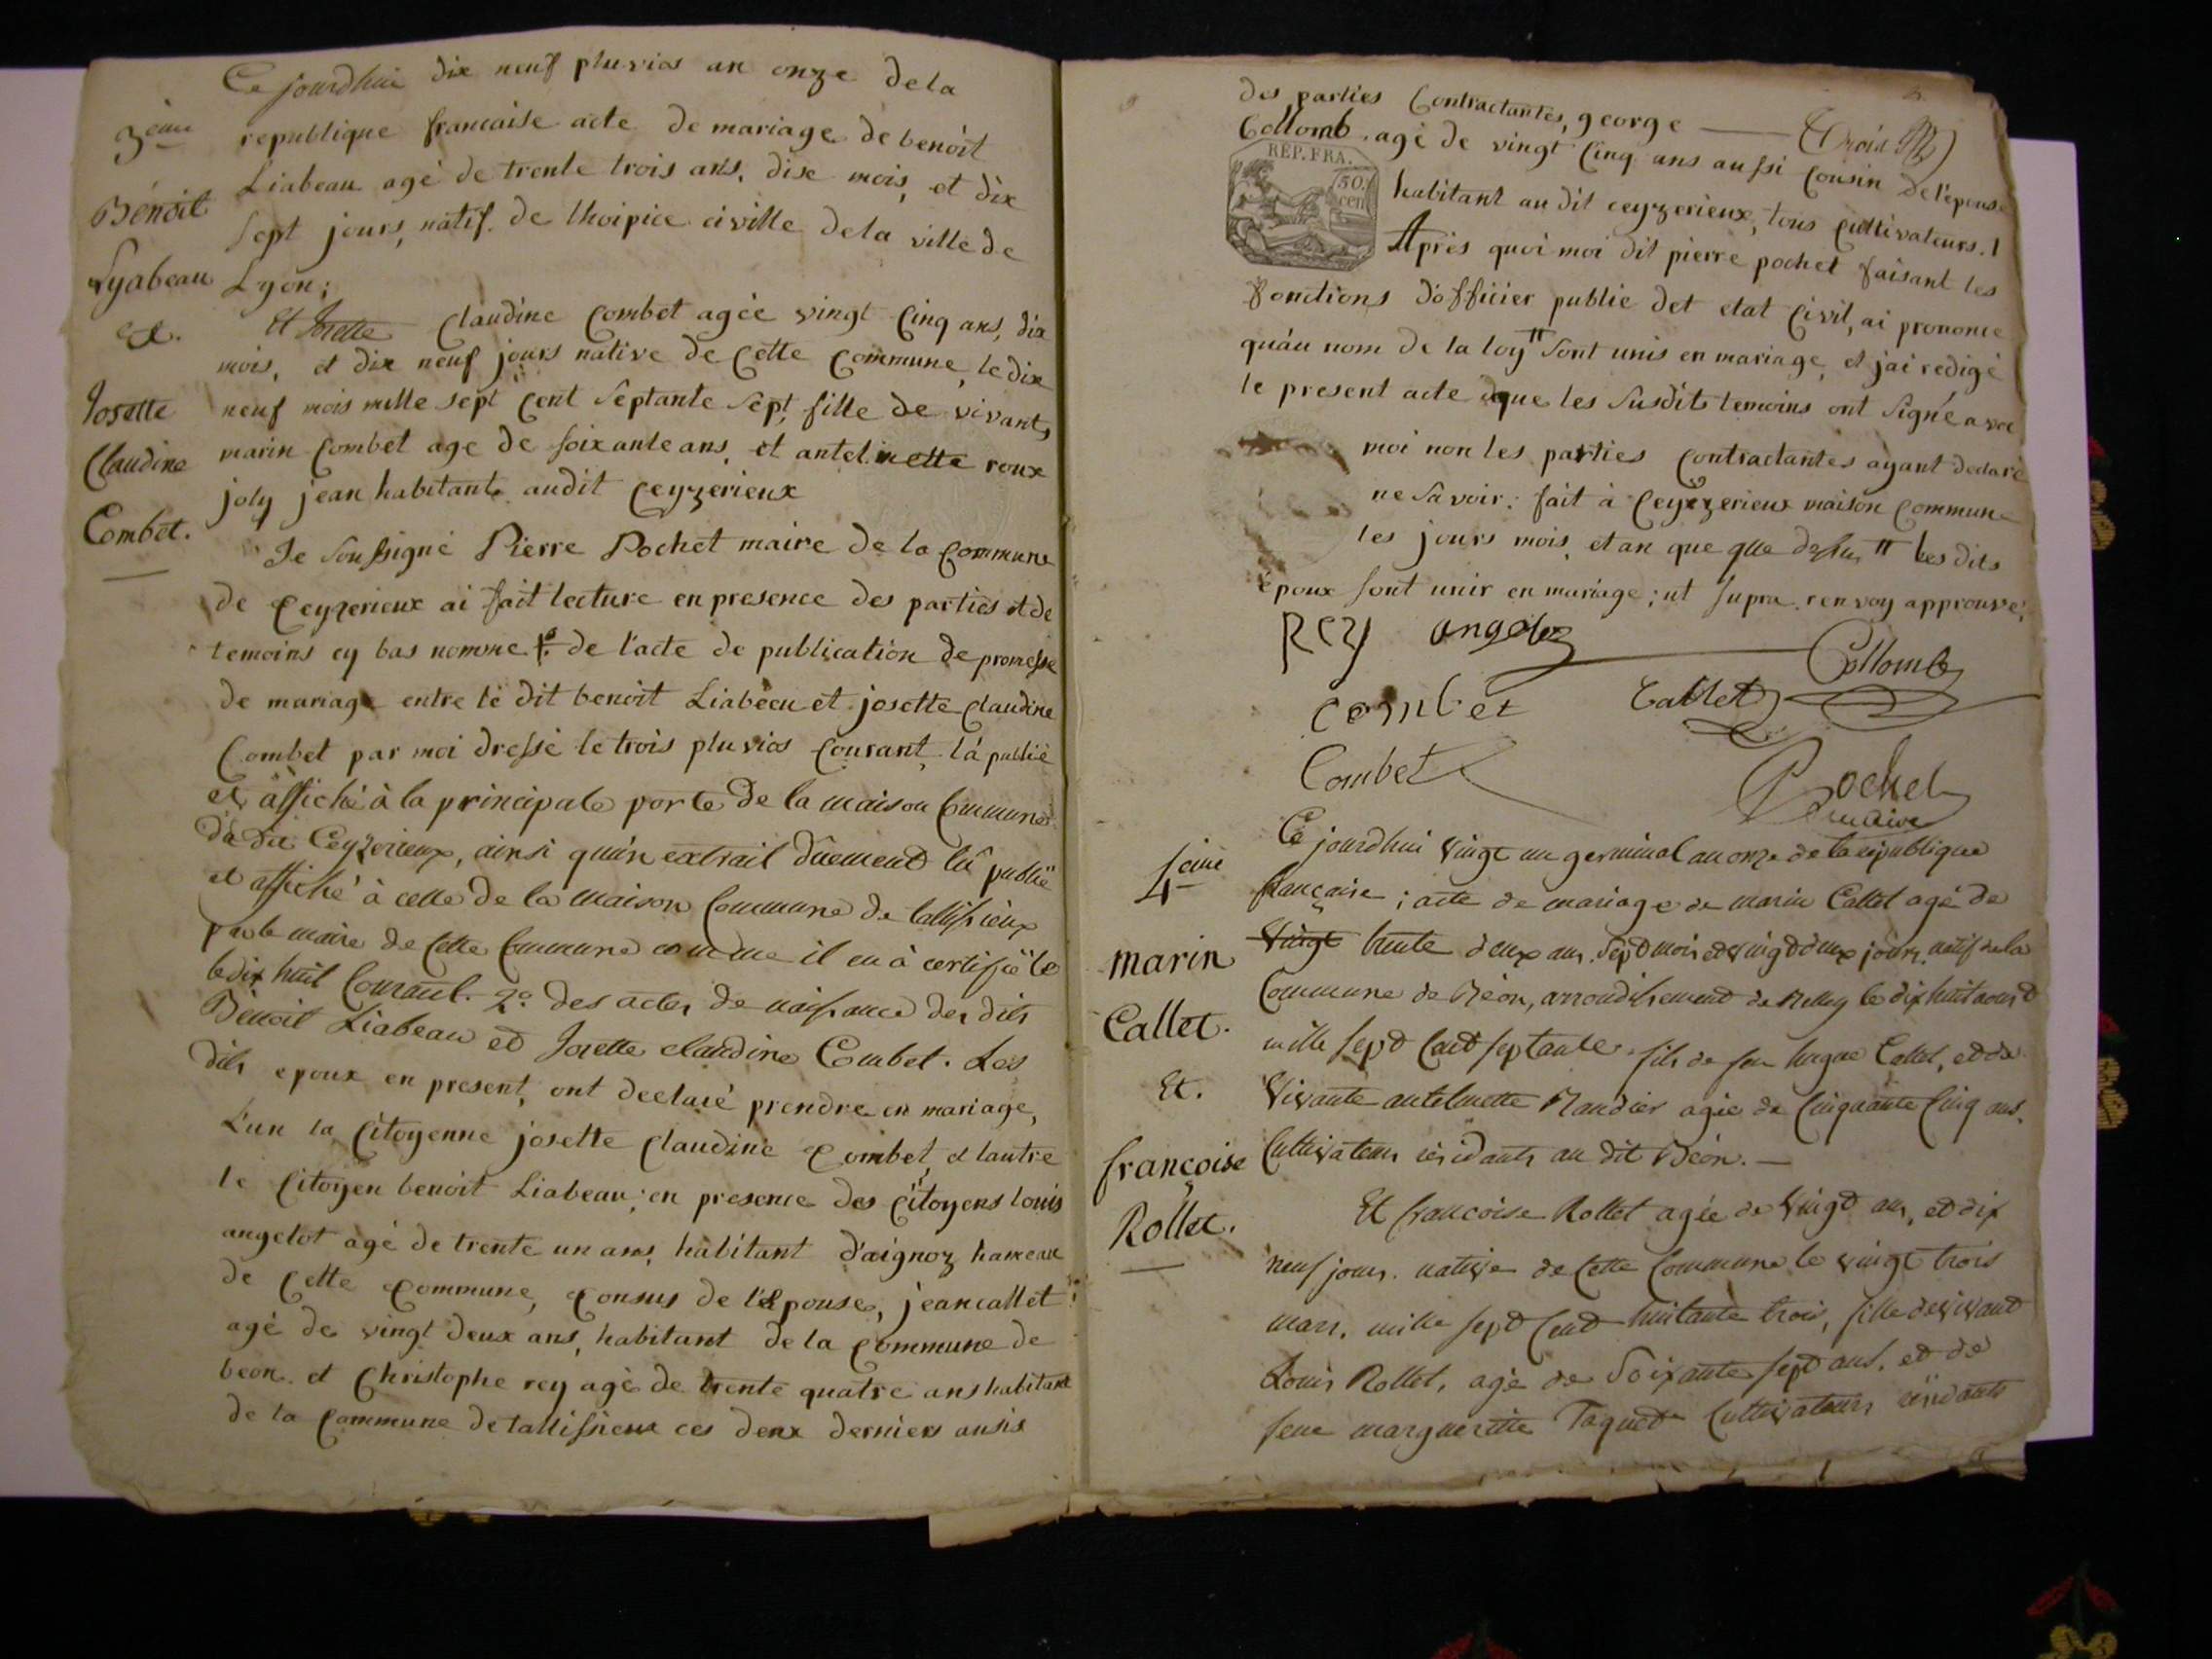 Ce jourdhui dix neuf pluvios an onze dela
3eme republique francaise acte de mariage de benoit
Liabeau agé de trente trois ans, dise mois, et dix
Bénoit
sept jours, natif de lhoipice civille dela ville de
Lyabeau Lyon;
et. Et Josette Claudine Combet agée vingt Cinq ans, dix
mois, et dix neuf jours native de Cette Commune, le dix
Josette neuf mois mille sept Cent Septante Sept, fille de vivants
Claudine marin Combet age de soixante ans, et antelmette roux
joly jean habitants audit Ceyzerieux
Combet.
Je soussigné Pierre Pochet maire de la Commune
de Ceyzerieux ai fait lecture en presence des parties et de
temoins cy bas nomme 1° de l'acte de publication de promesse
de mariage entre le dit benoit Liabeau et josette Claudine
Combet par moi dressé le trois pluvios Courant, lá publié
et affiché à la principale porte de la maison Commune
du dit Ceyzerieux, ainsi qu'un extrait dûement lû publié
et affiché à celle de la maison Commune de tallissieux
par le maire de Cette Commune comme il en à certifié le
le dix huit Courant. 2° des actes de naissance des dits
Bénoit Liabeau et Josette claudine Combet. Les
dits epoux en present, ont declaré prendre en mariage,
L'un la Citoyenne josette Claudine Combet, et lautre
le Citoyen benoit Liabeau; en presence des Citoyens louis
angelot agé de trente un ans, habitant d'aignoz hameau
de Cette Commune, Consus de l'epouse, jean callet
agé de vingt deux ans, habitant de la Commune de
beon. et Christophe rey agé de trente quatre ans habitant
de la Commune de tallissieux ces deux derniers ausis
des parties Contractantes, george
Collomb, agé de vingt Cinq ans aussi Cousin de l'epouse
REP. FRA.
50. cen
habitant au dit ceyzerieux, tous Cultivateurs.
Après quoi moi dit pierre pochet faisant les
fonctions d'officier public det etat Civil, ai prononce
qu'au nom de la loy # Sont unis en mariage, et jai redigé
le present acte que les Susdits temoins ont Signé avec
moi non les parties Contractantes ayant declaré
ne Savoir: fait à Ceyzerieux maison Commune
les jours mois, et an que que dessus # Les dits
époux sont unir en mariage; ut supra. renvoy approuvé,
Rey angelot
Collomb
Combet Callet
Combet Pochet
maire
Ce jourdhui vingt un germinal an onze de la republique
4eme française; acte de mariage de marin Callet agé de
vingt trente deux ans. Sept mois et vingt deux jours. natif de la
marin Commune de Béon, arrondissement de Belley le dix huit aoust
Callet. mille Sept Cent septante. fils de feu hugue Callet, et de
Et. Vivante antelmette Naudier agée de Cinquante Cinq ans.
françoise Cultivateurs residants au dit Béon.
Et francoise Rollet agée de Vingt ans, et dix
Rollet.
neuf jours. native de Cette Commune le vingt trois
mars, mille sept Cent huitante trois, fille de vivant
Louis Rollet, agé de Soixante sept ans. et de
feue marguerite Taquet Cultivateurs residants